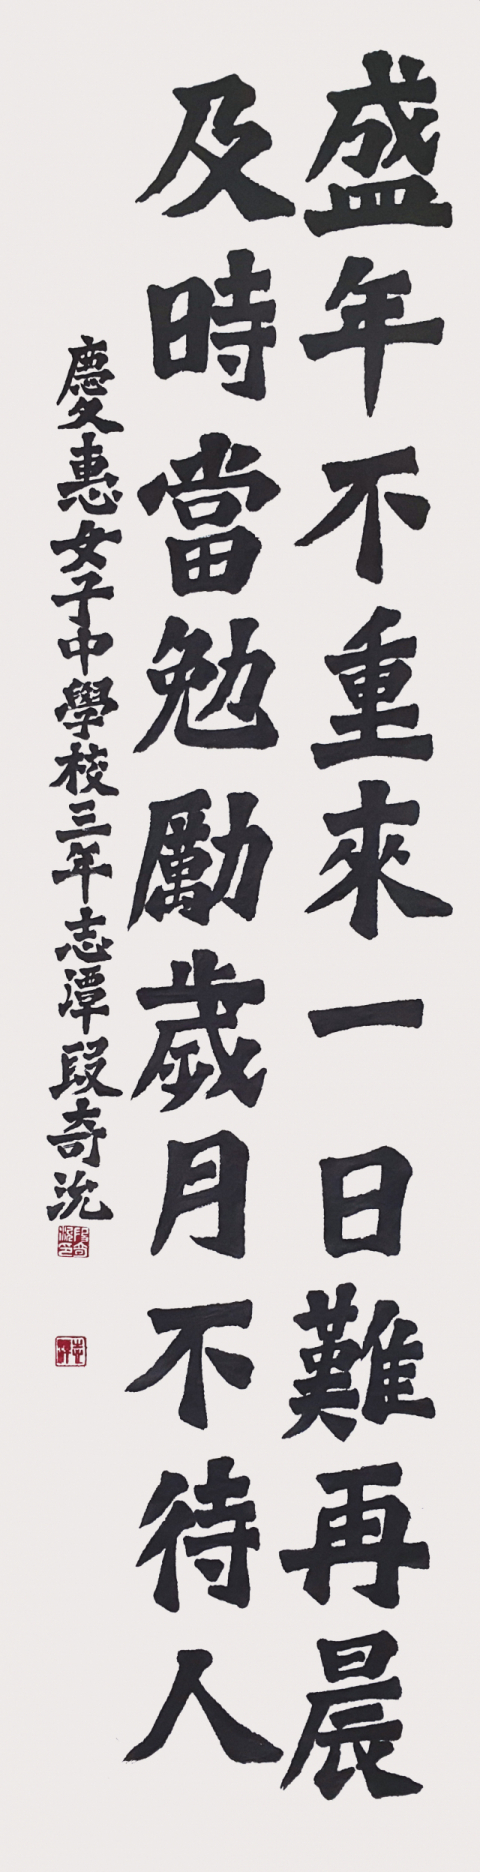 盛年不重來一日難再晨
及時當勉勵歲月不待人
慶惠女子中學校三年志潭段奇沇